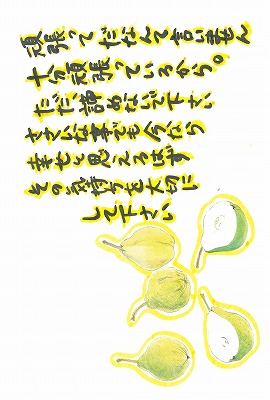 頑張って だなんて言いません
十分頑張っているから。
ただ、諦めないで下さい
ささいな事でも今なら
幸せと思えるはず
その気持ちを大切に
して下さい